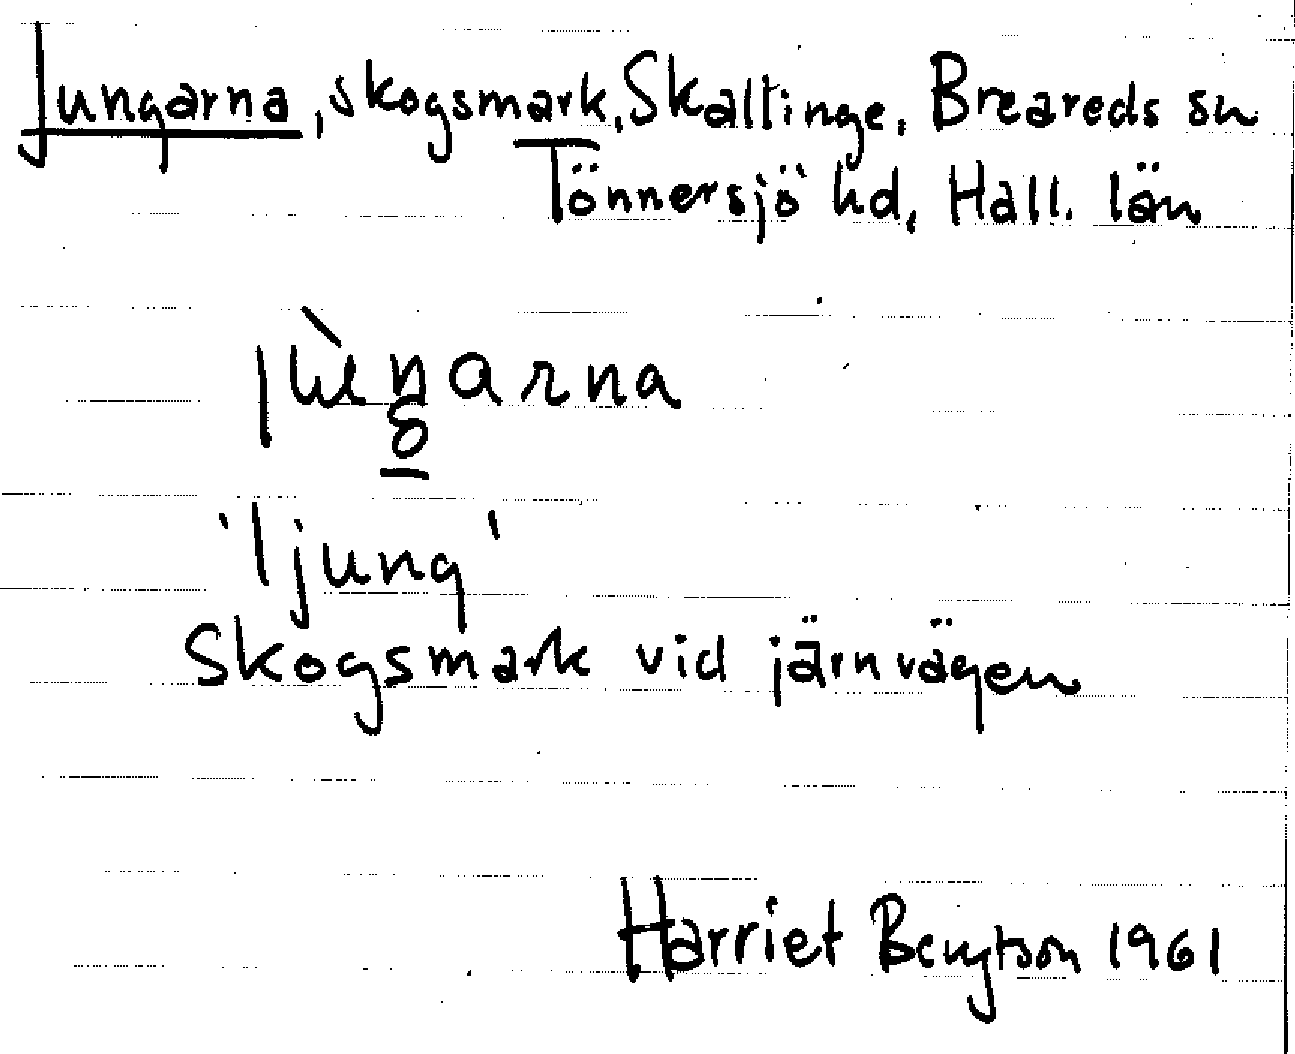 Jungarna, skogsmark, Skallinge, Breareds sn
Tönnersjö hd, Hall. län
'ljung'
Skogsmark vid järnvägen
Harriet Bengtson 1961